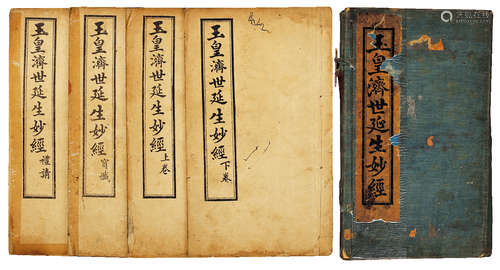 玉皇濟世延生妙經
禮請
玉皇濟世延生妙經
寶懺
玉皇濟世延生妙經
上卷
玉皇濟世延生妙經
下卷
玉皇濟世延生妙經